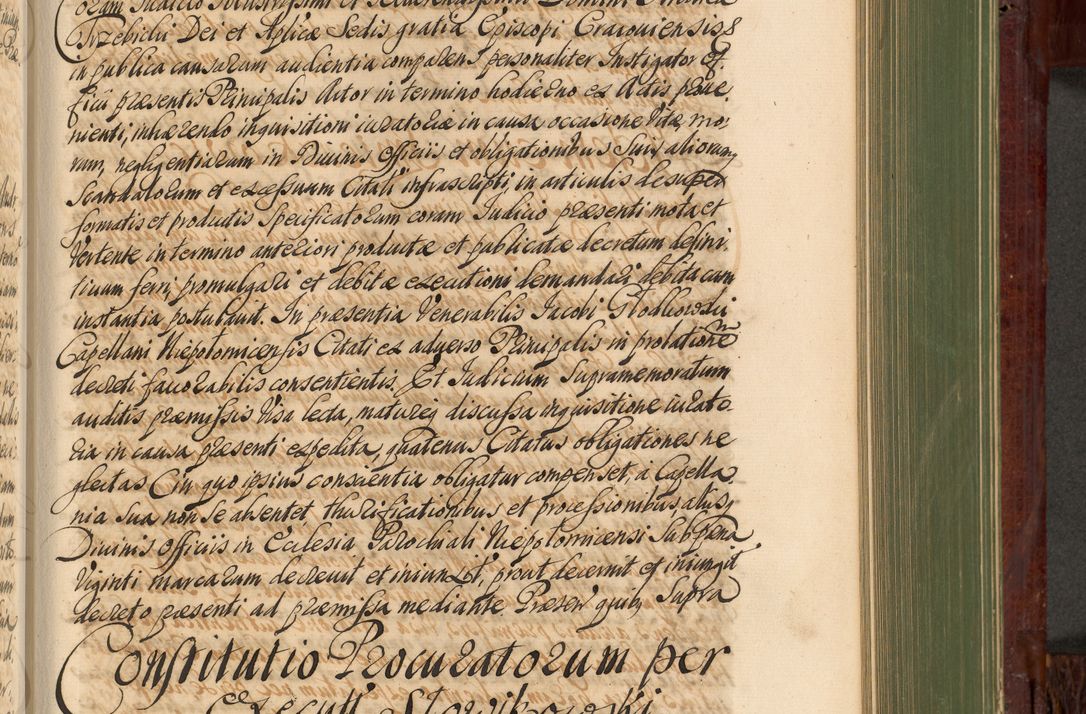 oram Judicio Illustrissimi et Reverendissimi Domini Andreæ
Trzebicki Dei et Aplicæ Sedis gratia Episcopi Cracoviensis &
in publica causarum audientia comparens personaliter Instigator Of
ficii præsentis Principalis Actor in termino hodierno ex Actis præve
nienti, inhærendo inquisitioni iuratoriæ in causa occasione Vitæ, mo,
rum, negligentiarum in Divinis Officiis et obligationibus Suis, aliorumq
Scandalorum et excessuum Citati infrascripti, in articulis desuper
formatis et productis Specificatorum coram Judicio præsenti mota et
Vertente in termino anteriori productæ et publicatæ decretum defini,
tivum ferri, promulgari et debitæ executioni demandari debita cum
instantia postulavit. In præsentia Venerabilis Jacobi
Capellani Niepolomicensis Citati ex adverso Principalis in prolationem
decreti favorabilis consentientis. Et Judicium Supramemoratum
auditis præmissis Visa lecta, matureq discussa inquisitione iurato
ria in causa præsenti expedita, quatenus Citatus obligationes ne
glectas Cin quo ipsius conscientia obligatur compenset, a Capella
nia Sua non Se absentet, thurificationibus et processionibus aliisq
Divinis Officiis in Ecclesia Parochiali Niepolomicensi Sub pæna
Viginti marcarum decrevit et iniunxit, prout decernit et iniungit
decreto præsenti ad præmissa mediante. Præsen quib, Supra
Constitutio Procuratorum per
Execut. Slowikowski